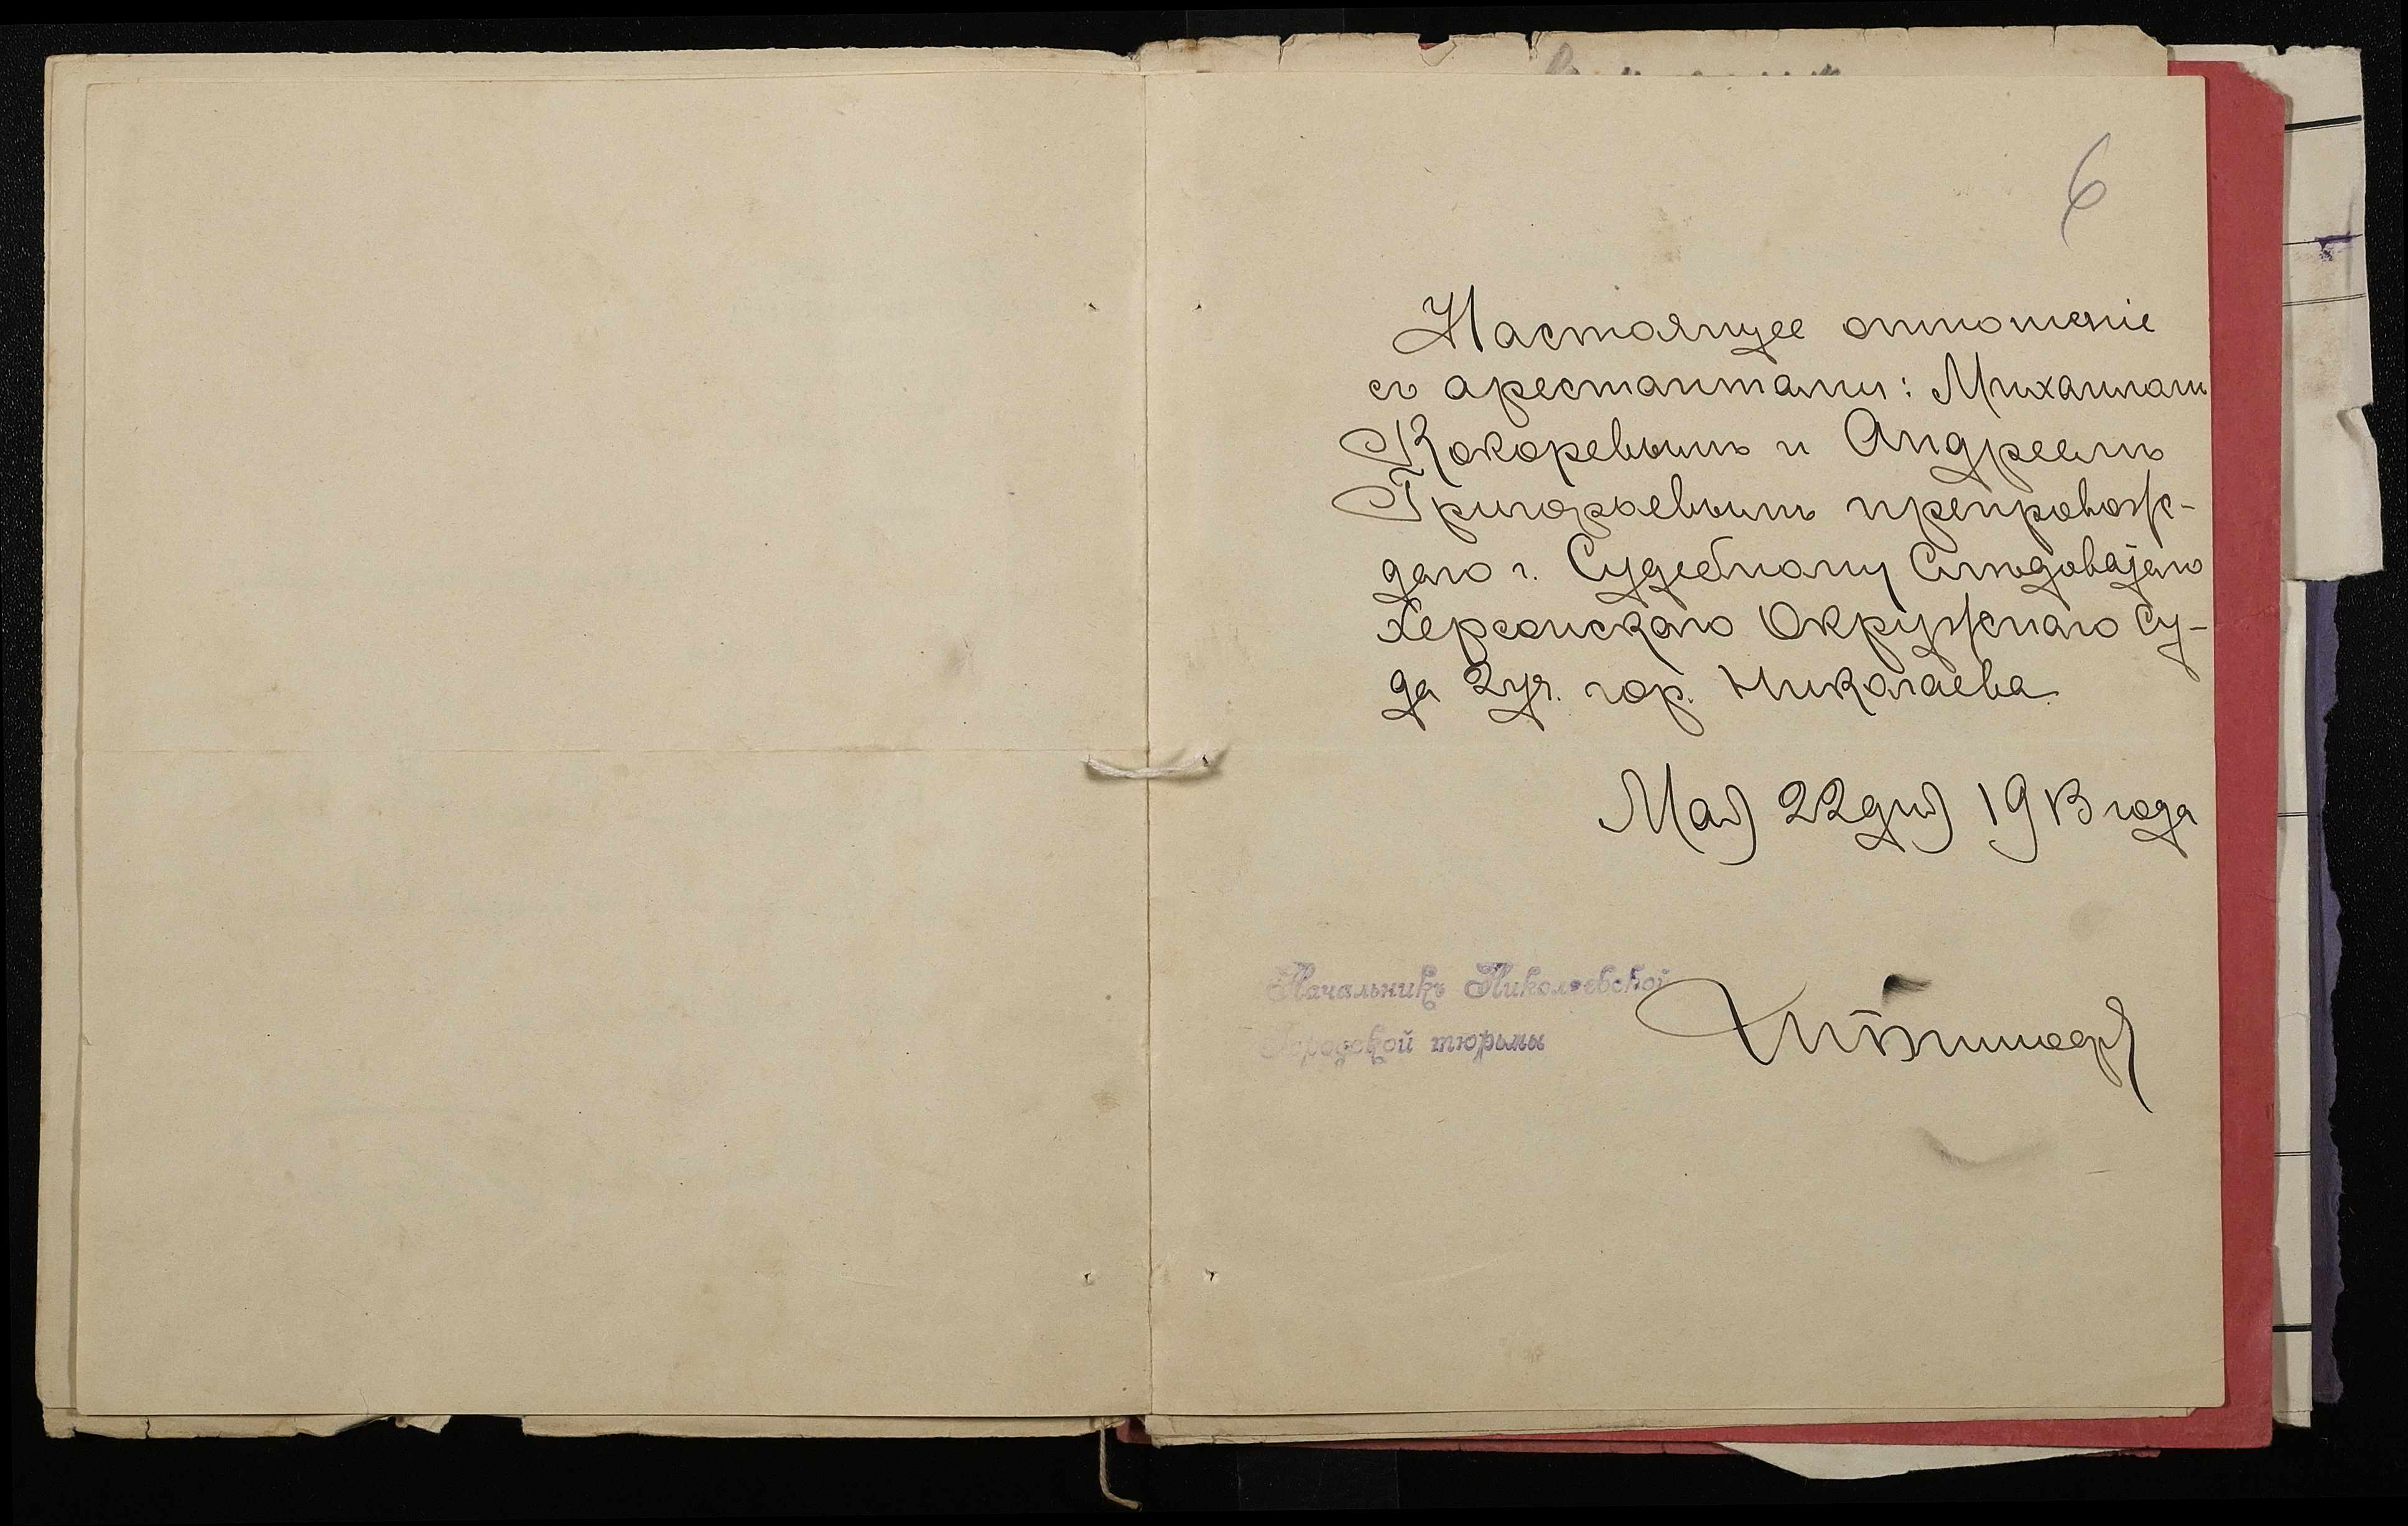 6
Настоящее отношеніе
съ арестантами: Михаиломъ
Кокоревымъ и Андреемъ
Григорьевымъ препровож-
даю г. Судебному Слѣдователю
Херсонскаго Окружнаго Су-
да 2 уч. гор. Николаева.
Мая 22 дня 1913 года
Начальникъ Николаевской
Городской тюрьмы